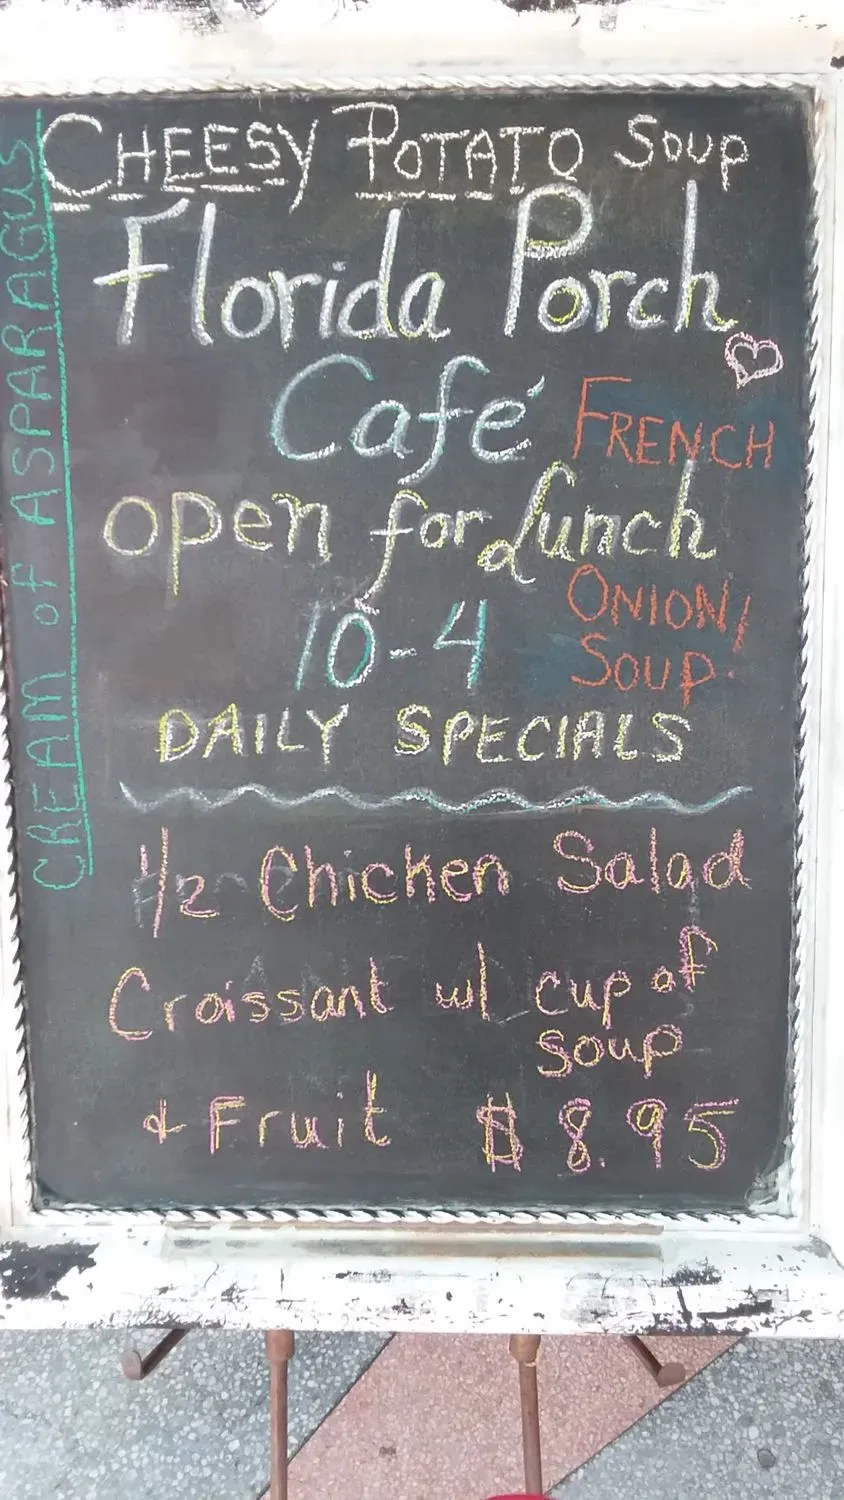 CHEESY POTATO Soup
Florida Porch
Café
FRENCH
open for Lunch
ONION
SOUP
10-4
DAILY SPECIALS
1/2 Chicken Salad
Croissant w/ cup of
soup
& Fruit $8.95
CREAM of ASPARAGUS